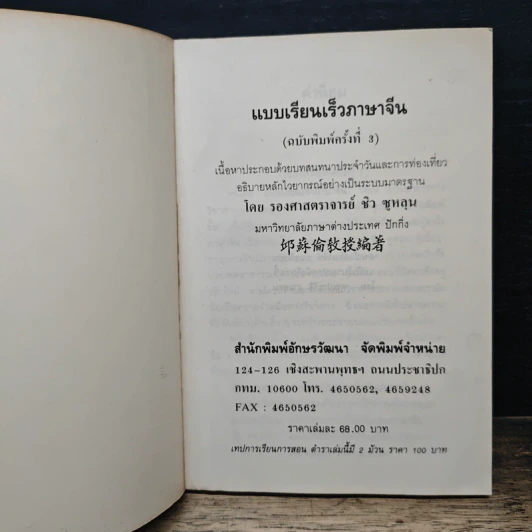 แบบเรียนเร็วภาษาจีน
(ฉบับพิมพ์ครั้งที่ 3)
เนื้อหาประกอบด้วยบทสนทนาประจำวันและการท่องเที่ยว
อธิบายหลักไวยากรณ์อย่างเป็นระบบมาตรฐาน
โดย รองศาสตราจารย์ ชิว ซูหลุน
มหาวิทยาลัยภาษาต่างประเทศ ปักกิ่ง
邱蘇倫教授編著
สำนักพิมพ์อักษรวัฒนา จัดพิมพ์จำหน่าย
124-126 เชิงสะพานพุทธฯ ถนนประชาธิปก
กทม. 10600 โทร. 4650562, 4659248
FAX : 4650562
ราคาเล่มละ 68.00 บาท
เทปการเรียนการสอน ตำราเล่มนี้มี 2 ม้วน ราคา 100 บาท